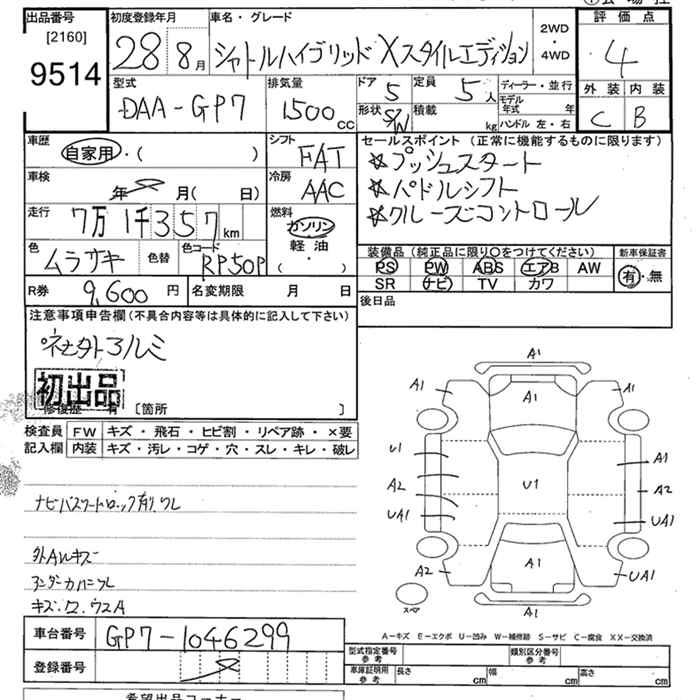 出品番号
[2160]
9514
初度登録年月
28 8月
車名・グレード
シャトルハイブリッド Xスタイルエディション
2WD
・
4WD
評価点
4
外装 内装
C B
型式
DAA-GP7
排気量
1500 CC
ドア 5
形状 S/W
定員 5人
積載 kg
ディーラー・並行
モデル年式 年
ハンドル 左・右
車歴
自家用・( )
シフト
FAT
車検
年 月( 日)
冷房
AAC
走行
7万1千357 km
燃料
ガソリン
軽油
( ・ )
色
ムラサキ
色替
色コード
RP50P
R券 9,600 円
名変期限 月 日
セールスポイント (正常に機能するものに限ります)
☆プッシュスタート
☆パドルシフト
☆クルーズコントロール
装備品(純正品に限り〇をつけてください)
PS PW ABS エアB AW
SR ナビ TV カワ
新車保証書
有・無
後日品
注意事項申告欄(不具合内容等は具体的に記入して下さい)
初出品
修復歴 有 〔箇所 〕
検査員
記入欄
FW キズ・飛石・ヒビ割・リペア跡・×要
内装 キズ・汚レ・コゲ・穴・スレ・キレ・破レ
ナビパスワードロック有リ
外Aルキズ
A1
A1 A1 A1
U1 A1
A2 U1 A2
UA1 UA1
A2 A1 UA1
スペア
A1
A-キズ E-エクボ U-凹み W-補修跡 S-サビ C-腐食 XX-交換済
車台番号 GP7-1046299
登録番号
型式指定番号
参考
類別区分番号
参考
車庫証明用
参考
長さ cm 幅 cm 高さ cm
希望出品コーナー